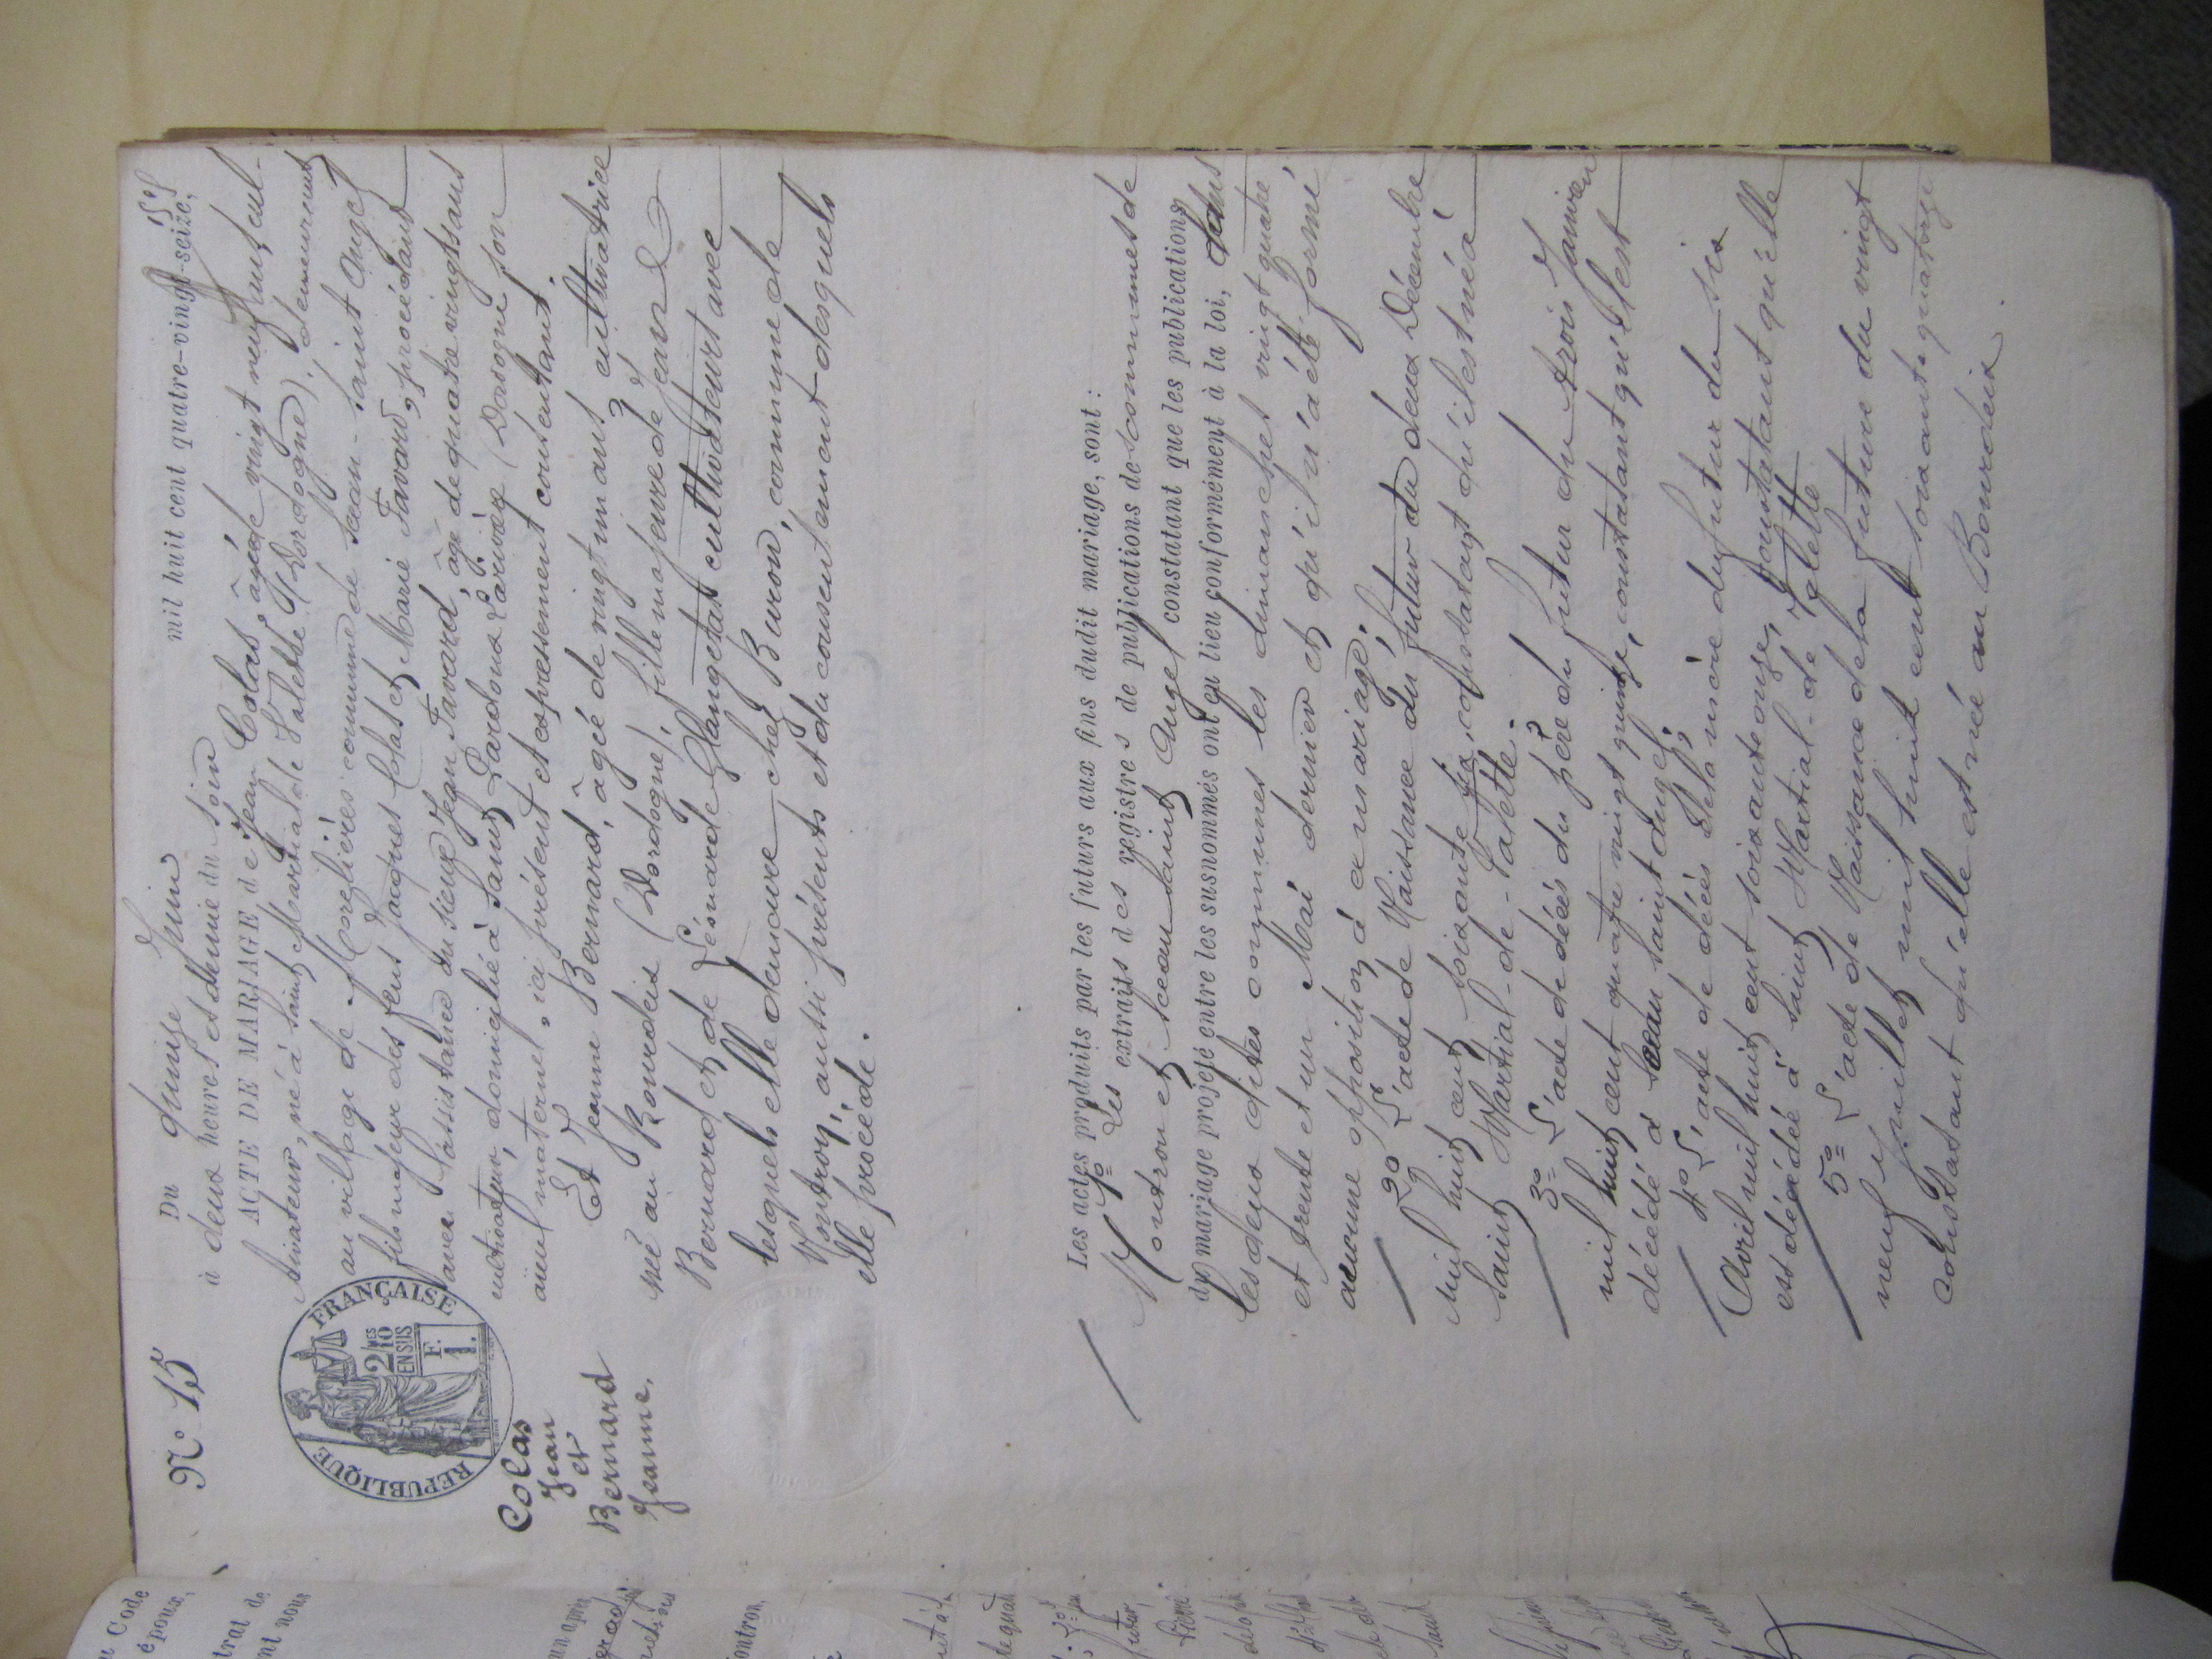 u Code
époux,
trat de
nt nous
un après
ontron,
Pierre
Nº 15
15º
Du quinze Juin mil huit cent quatre-vingt-seize,
à deux heures et demie du soir
ACTE DE MARIAGE de Jean Colas, âgé de vingt neuf ans, cul-
tivateur, né à Saint Martial de Valette (Dordogne), demeurant
au village de Morelières commune de Sceau-Saint Angel
fils majeur des feus Jacques Colas et Marie Favard, procédant
avec l'assistance du sieur Jean Favard, âgé de quatre vingts ans
cultivateur, domicilié à Saint Pardoux Larivière (Dordogne son
aïeul maternel, ici présent et expressement consentant.
Et Jeanne Bernard, âgée de vingt un ans, cultivatrice
née au Bourdeix (Dordogne), fille majeure de Jean
Bernard et de Léonarde Glangetas cultivateurs avec
lesquels elle demeure chez Buron, commune de
Nontron, aussi présents et du consentement desquels
elle procède.
RÉPUBLIQUE FRANÇAISE
2/10MES
EN SUS
F.
1.
Colas
Jean
et
Bernard
Jeanne.
Les actes produits par les futurs aux fins dudit mariage, sont :
1º Les extraits des registres de publications des communes de
Nontron et Sceau Saint Angel constatant que les publications
du mariage projeté entre les susnommés ont eu lieu conformément à la loi, dans
les deux dites communes les dimanches vingt quatre
et trente et un Mai dernier et qu'il n'a été formé
aucune opposition à ce mariage.
2º L'acte de Naissance du futur du deux Décembre
mil huit cent soixante six, constatant qu'il est né à
Saint Martial-de-Valette.
3º L'acte de décès du père du futur du trois Janvier
mil huit cent quatre vingt quinze, constatant qu'il est
décédé à Sceau Saint Angel.
4º L'acte de décès de la mère du futur du six
Avril mil huit cent soixante onze, constatant qu'elle
est décédée à Saint Martial-de Valette
5º L'acte de Naissance de la future du vingt
neuf Juillet mil huit cent soixante quatorze
constatant qu'elle est née au Bourdeix.